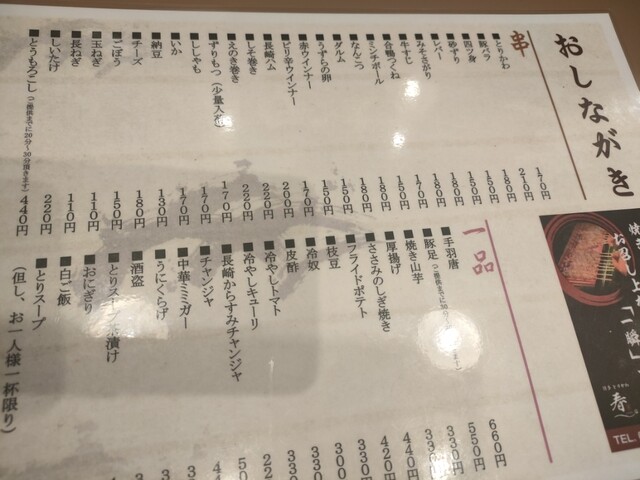 おしながき
串
■とりかわ 170円
■豚バラ 210円
■四ツ身 180円
■砂ずり 150円
■レバー 150円
■みそさがり 180円
■牛すじ 180円
■合鴨つくね 170円
■ミンチボール 150円
■なんこつ 180円
■ダルム 180円
■うずらの卵 150円
■赤ウインナー 150円
■ピリ辛ウインナー 170円
■長崎ハム 200円
■しそ巻き 220円
■えのき巻き 220円
■ずりもつ（少量入荷） 170円
■ししゃも 170円
■いか 170円
■納豆 130円
■チーズ 180円
■ごぼう 150円
■玉ねぎ 110円
■長ねぎ 110円
■しいたけ 220円
■とうもろこし（ご提供までに20分〜30分頂きます） 440円
一品
■手羽唐 660円
■豚足（ご提供までに20分〜30分 ます） 550円
■焼き山芋 330円
■厚揚げ 330円
■ささみのしぎ焼き 440円
■フライドポテト 420円
■枝豆 300円
■冷奴 300
■皮酢 330
■冷やしトマト 330
■冷やしキューリ 22
■長崎からすみチャンジャ 50
■チャンジャ 44
■中華ミミガー
■うにくらげ
■酒盗
■とりスープ茶漬け
■おにぎり
■白ご飯
■とりスープ
（但し、お一人様一杯限り）
「一瞬」
寿
TEL.